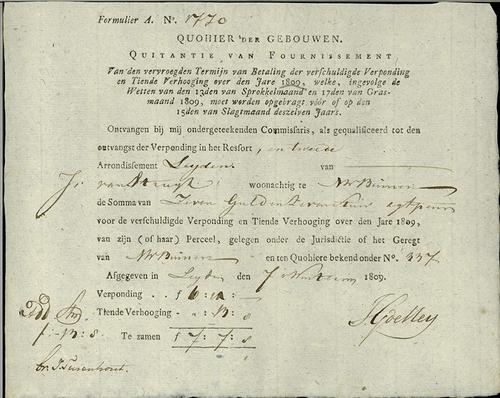 Formulier A. N°. 1770
QUOHIER DER GEBOUWEN.
QUITANTIE VAN FOURNISSEMENT
Van den vervroegden Termijn van Betaling der verschuldigde Verponding
en Tiende Verhooging over den Jare 1809, welke, ingevolge de
Wetten van den 13den van Sprokkelmaand en 17den van Gras-
maand 1809, moet worden opgebragt vóór of op den
15den van Slagtmaand deszelven Jaars.
Ontvangen bij mij ondergeteekenden Commissaris, als gequalificeerd tot den
ontvangst der Verponding in het Ressort, en tweede
Arrondissement Leyden van
woonachtig te
de Somma van Zeven Gulden
voor de verschuldigde Verponding en Tiende Verhooging over den Jare 1809,
van zijn (of haar) Perceel, gelegen onder de Jurisdictie of het Geregt
van en ten Quohiere bekend onder N°. 337
Afgegeven in Leyden den 7 1809.
Verponding . . f 6:
Tiende Verhooging - : 13: 8
Te zamen f 7: 7: 8